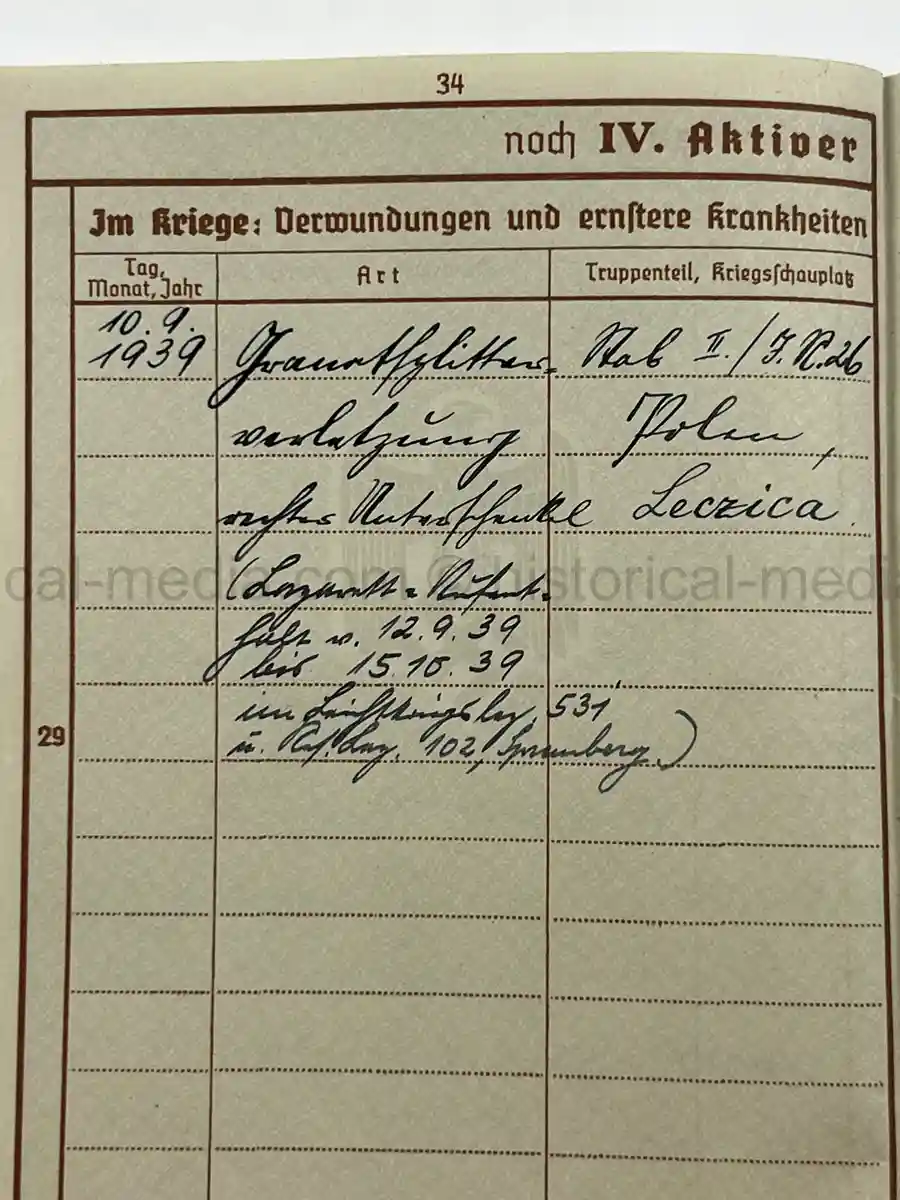 34
noch IV. Aktiver
Im Kriege: Verwundungen und ernstere Krankheiten
Tag, Monat, Jahr
Art
Truppenteil, Kriegsschauplatz
10. 9.
1939
Granatsplitter-
verletzung
rechter Unterschenkel
(Lazarett-Aufent-
halt v. 12.9.39
bis 15.10.39
im Leichtkrgslaz. 531
u. Res. Laz. 102, Spremberg.)
Stab II./J.R.26
Polen,
Leczica
29
cal-media.com © historical-medi